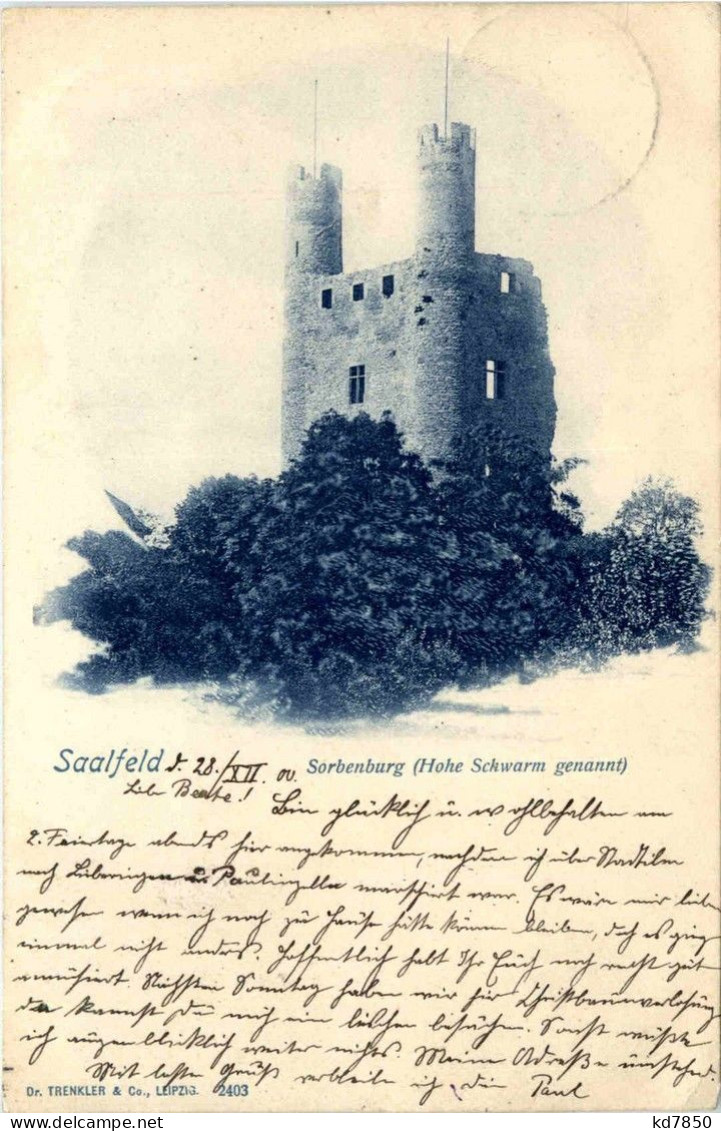 Saalfeld d. 28./XII. 00. Sorbenburg (Hohe Schwarm genannt)
Liebe Beate! Bin glücklich u. wohlbehalten am
2. Feiertage abends hier angekommen, nachdem ich über Stadtilm
nach Paulinzella marschirt war. Es wäre mir lieber
gewesen wenn ich noch zu Hause hätte können bleiben, doch es ging
einmal nicht anders. Hoffentlich habt Ihr Euch noch recht gut
amüsiert. Nächsten Sonntag haben wir hier Christbaumverlosung
da kannst Du mich ein bischen besuchen. Sonst wüßte
ich augenblicklich weiter nichts. Meine Adresse umstehend.
Mit besten Gruß verbleibe ich Dein Paul
Dr. TRENKLER & Co., LEIPZIG. 2403
kd7850